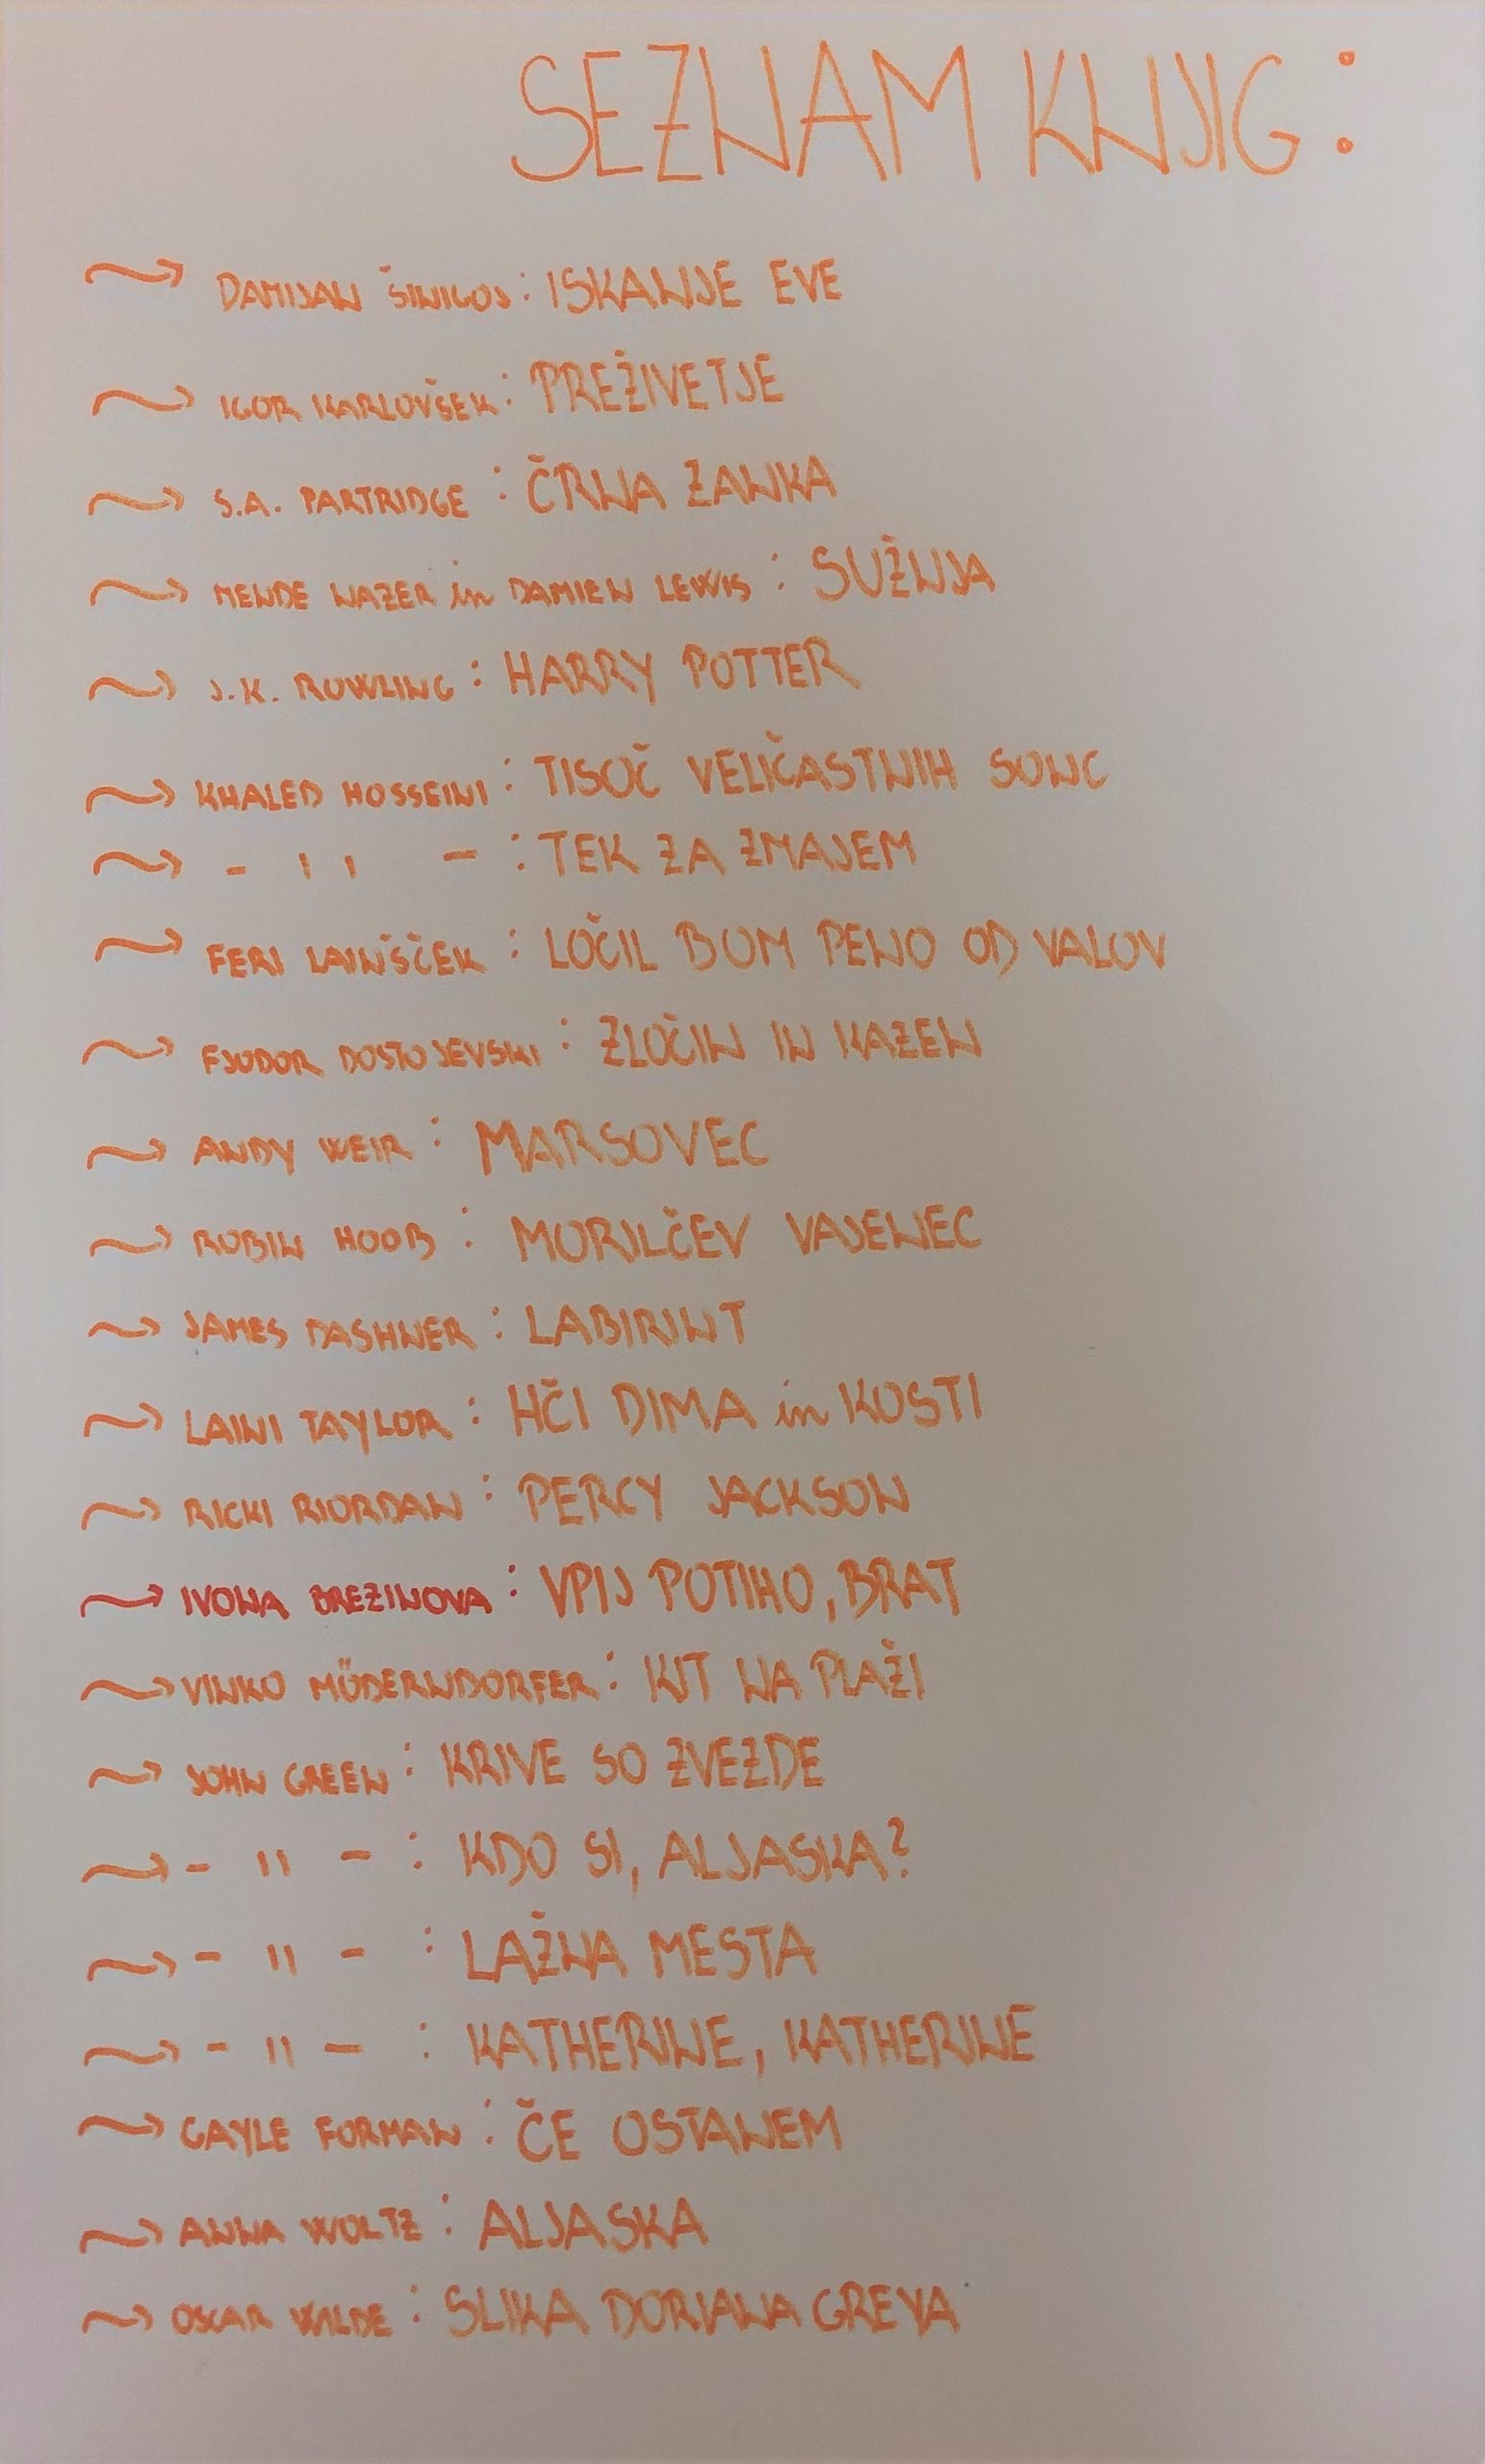 SEZNAM KNJIG:
DAMIJAN ŠINIGOJ: ISKANJE EVE
IGOR KARLOVŠEK: PREŽIVETJE
S.A. PARTRIDGE: ČRNA ZANKA
MENDE NAZER in DAMIEN LEWIS: SUŽNJA
J.K. ROWLING: HARRY POTTER
KHALED HOSSEINI: TISOČ VELIČASTNIH SONC
- '' -: TEK ZA ZMAJEM
FERI LAINŠČEK: LOČIL BOM PENO OD VALOV
FJODOR DOSTOJEVSKI: ZLOČIN IN KAZEN
ANDY WEIR: MARSOVEC
ROBIN HOOB: MORILČEV VAJENEC
JAMES DASHNER: LABIRINT
LAINI TAYLOR: HČI DIMA in KOSTI
RICKI RIORDAN: PERCY JACKSON
IVONA BREZINOVA: VPIJ POTIHO, BRAT
VINKO MÖDERNDORFER: KIT NA PLAŽI
JOHN GREEN: KRIVE SO ZVEZDE
- '' -: KDO SI, ALJASKA?
- '' -: LAŽNA MESTA
- '' -: KATHERINE, KATHERINE
GAYLE FORMAN: ČE OSTANEM
ANNA WOLTZ: ALJASKA
OSCAR WILDE: SLIKA DORIANA GREYA